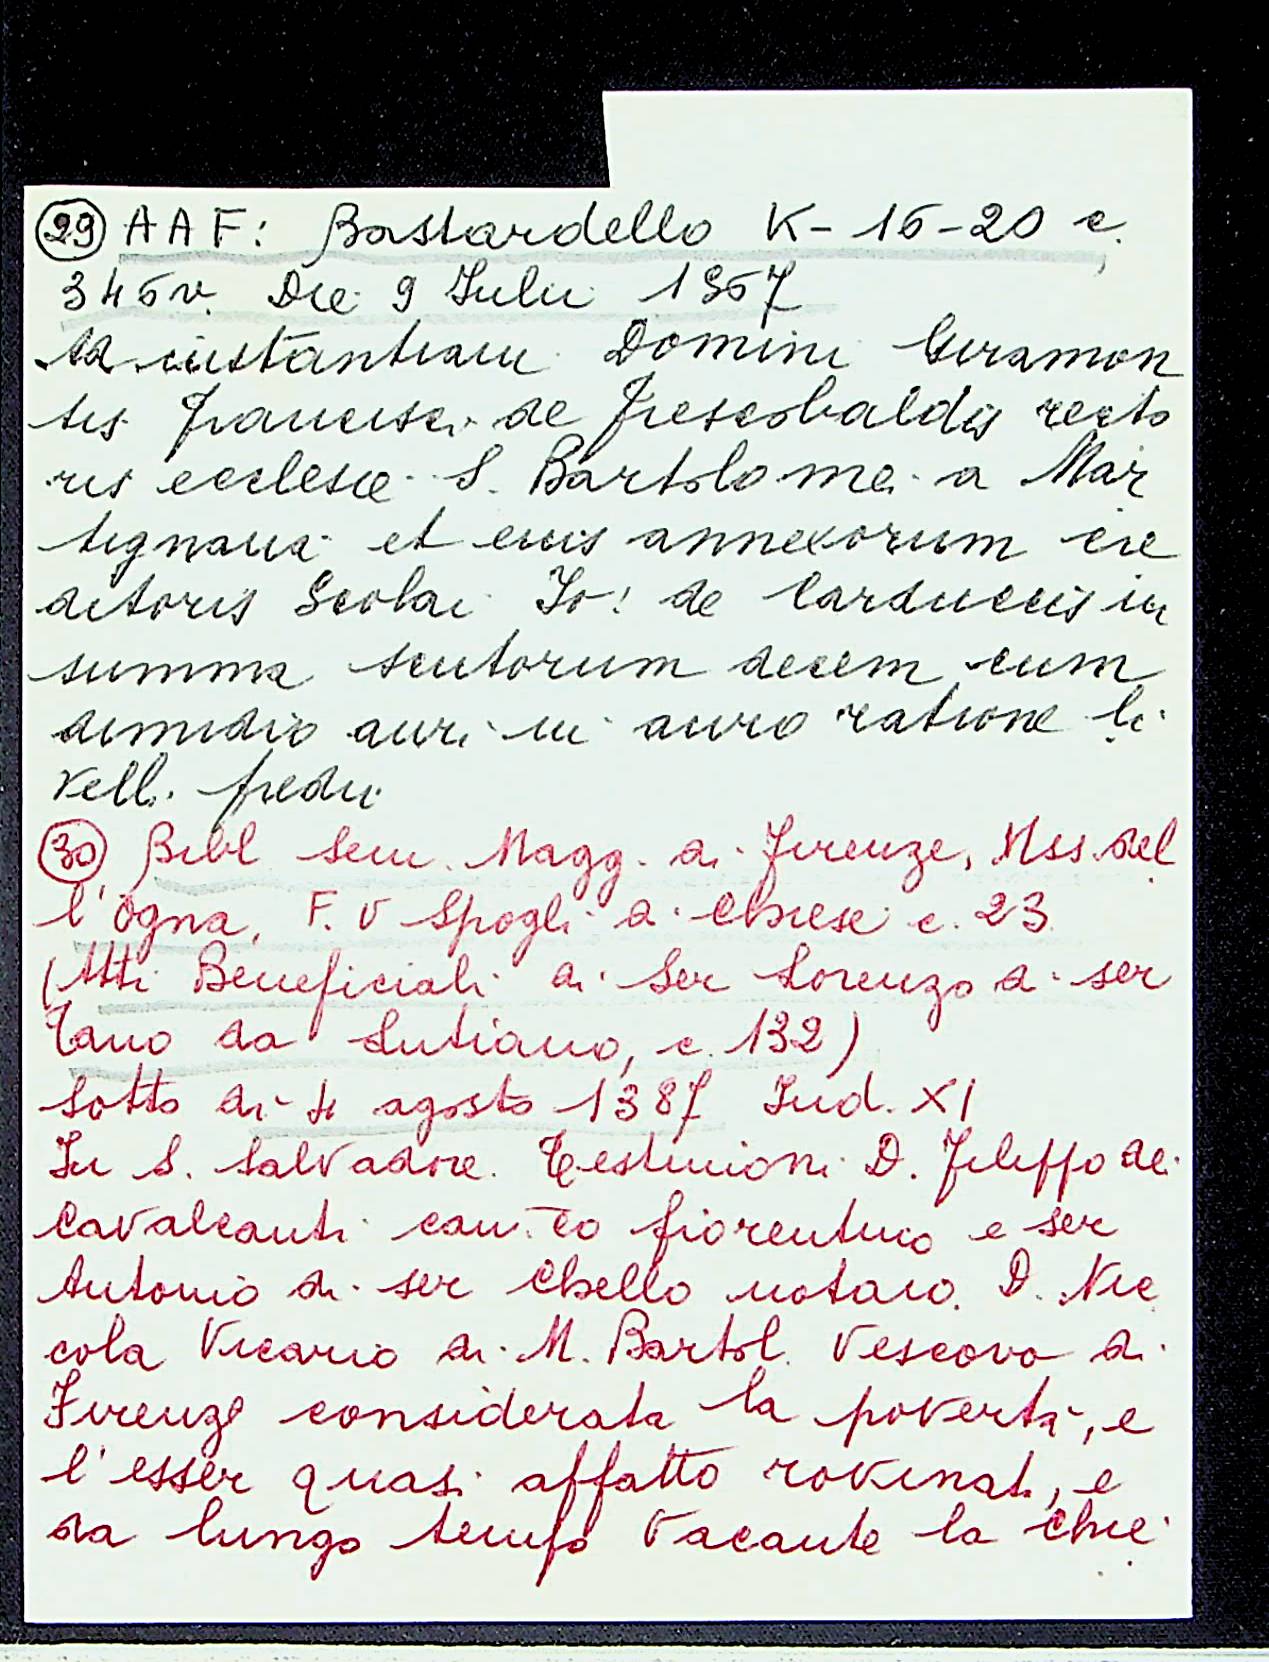 (29) AAF: Bastardello K-16-20 c.
345v. Die 9 Julii 1567
Ad instantiam Domini Geramon
tis Francisci de Frescobaldis recto
ris ecclesie S. Bartolomei a Mar
tignana et eius annexorum cre
ditoris Scolai Jo: de Carduccis in
summa scutorum decem cum
dimidio auri in auro ratione li
velli predii
(30) Bibl Sem. Magg. di Firenze, Mss. del
l'Ogna, F. V Spogli di Chiese c. 23
(Atti Beneficiali di Ser Lorenzo di ser
Tano da Lutiano, c. 132)
Sotto di 4 agosto 1387 Ind. XI
In S. Salvadore. Testimoni D. Filippo de
Cavalcanti can.co fiorentino e ser
Antonio di ser Chello notaio. D. Nic
cola Vicario di M. Bartol. Vescovo di
Firenze considerata la povertà, e
l'esser quasi affatto rovinati, e
da lungo tempo vacante la chie